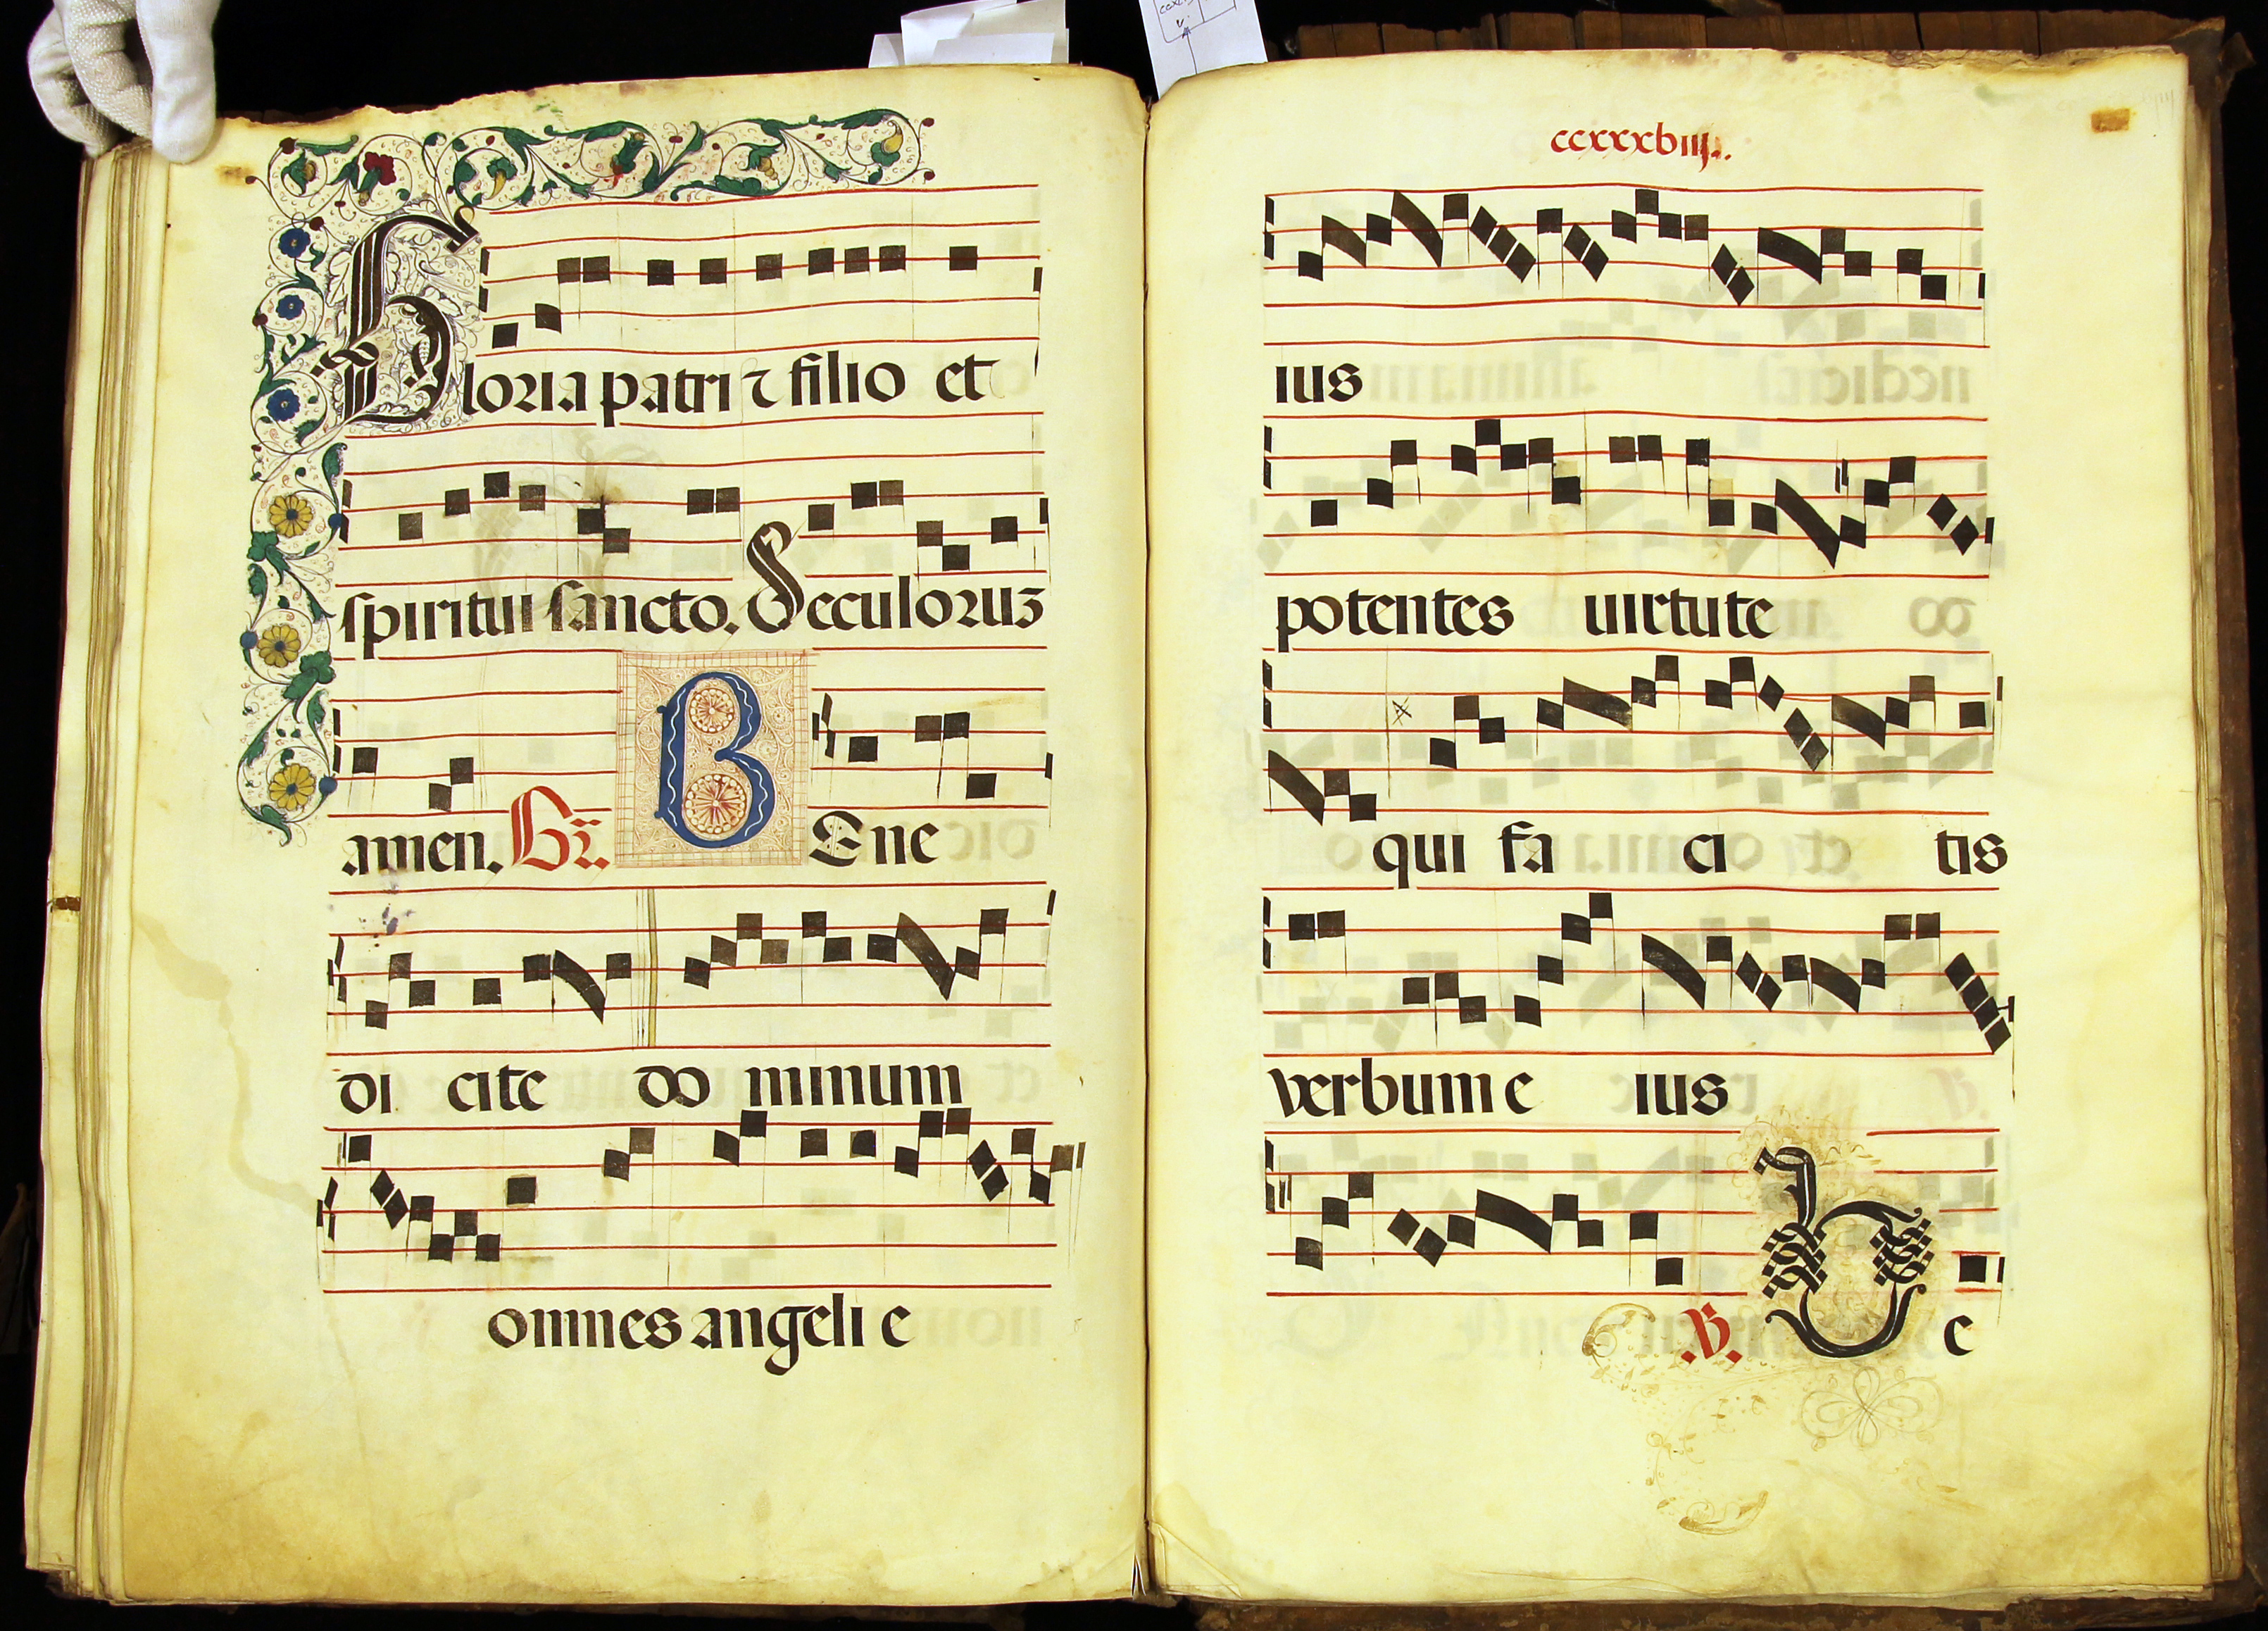 Gloria patri ⁊ filio et
spiritui sancto. Seculoruz
amen. Gr̄. BEne
di cite do minum
omnes angeli e
ccxxxbiij.
ius
potentes uirtute
qui fa ci tis
verbum e ius
.V. be